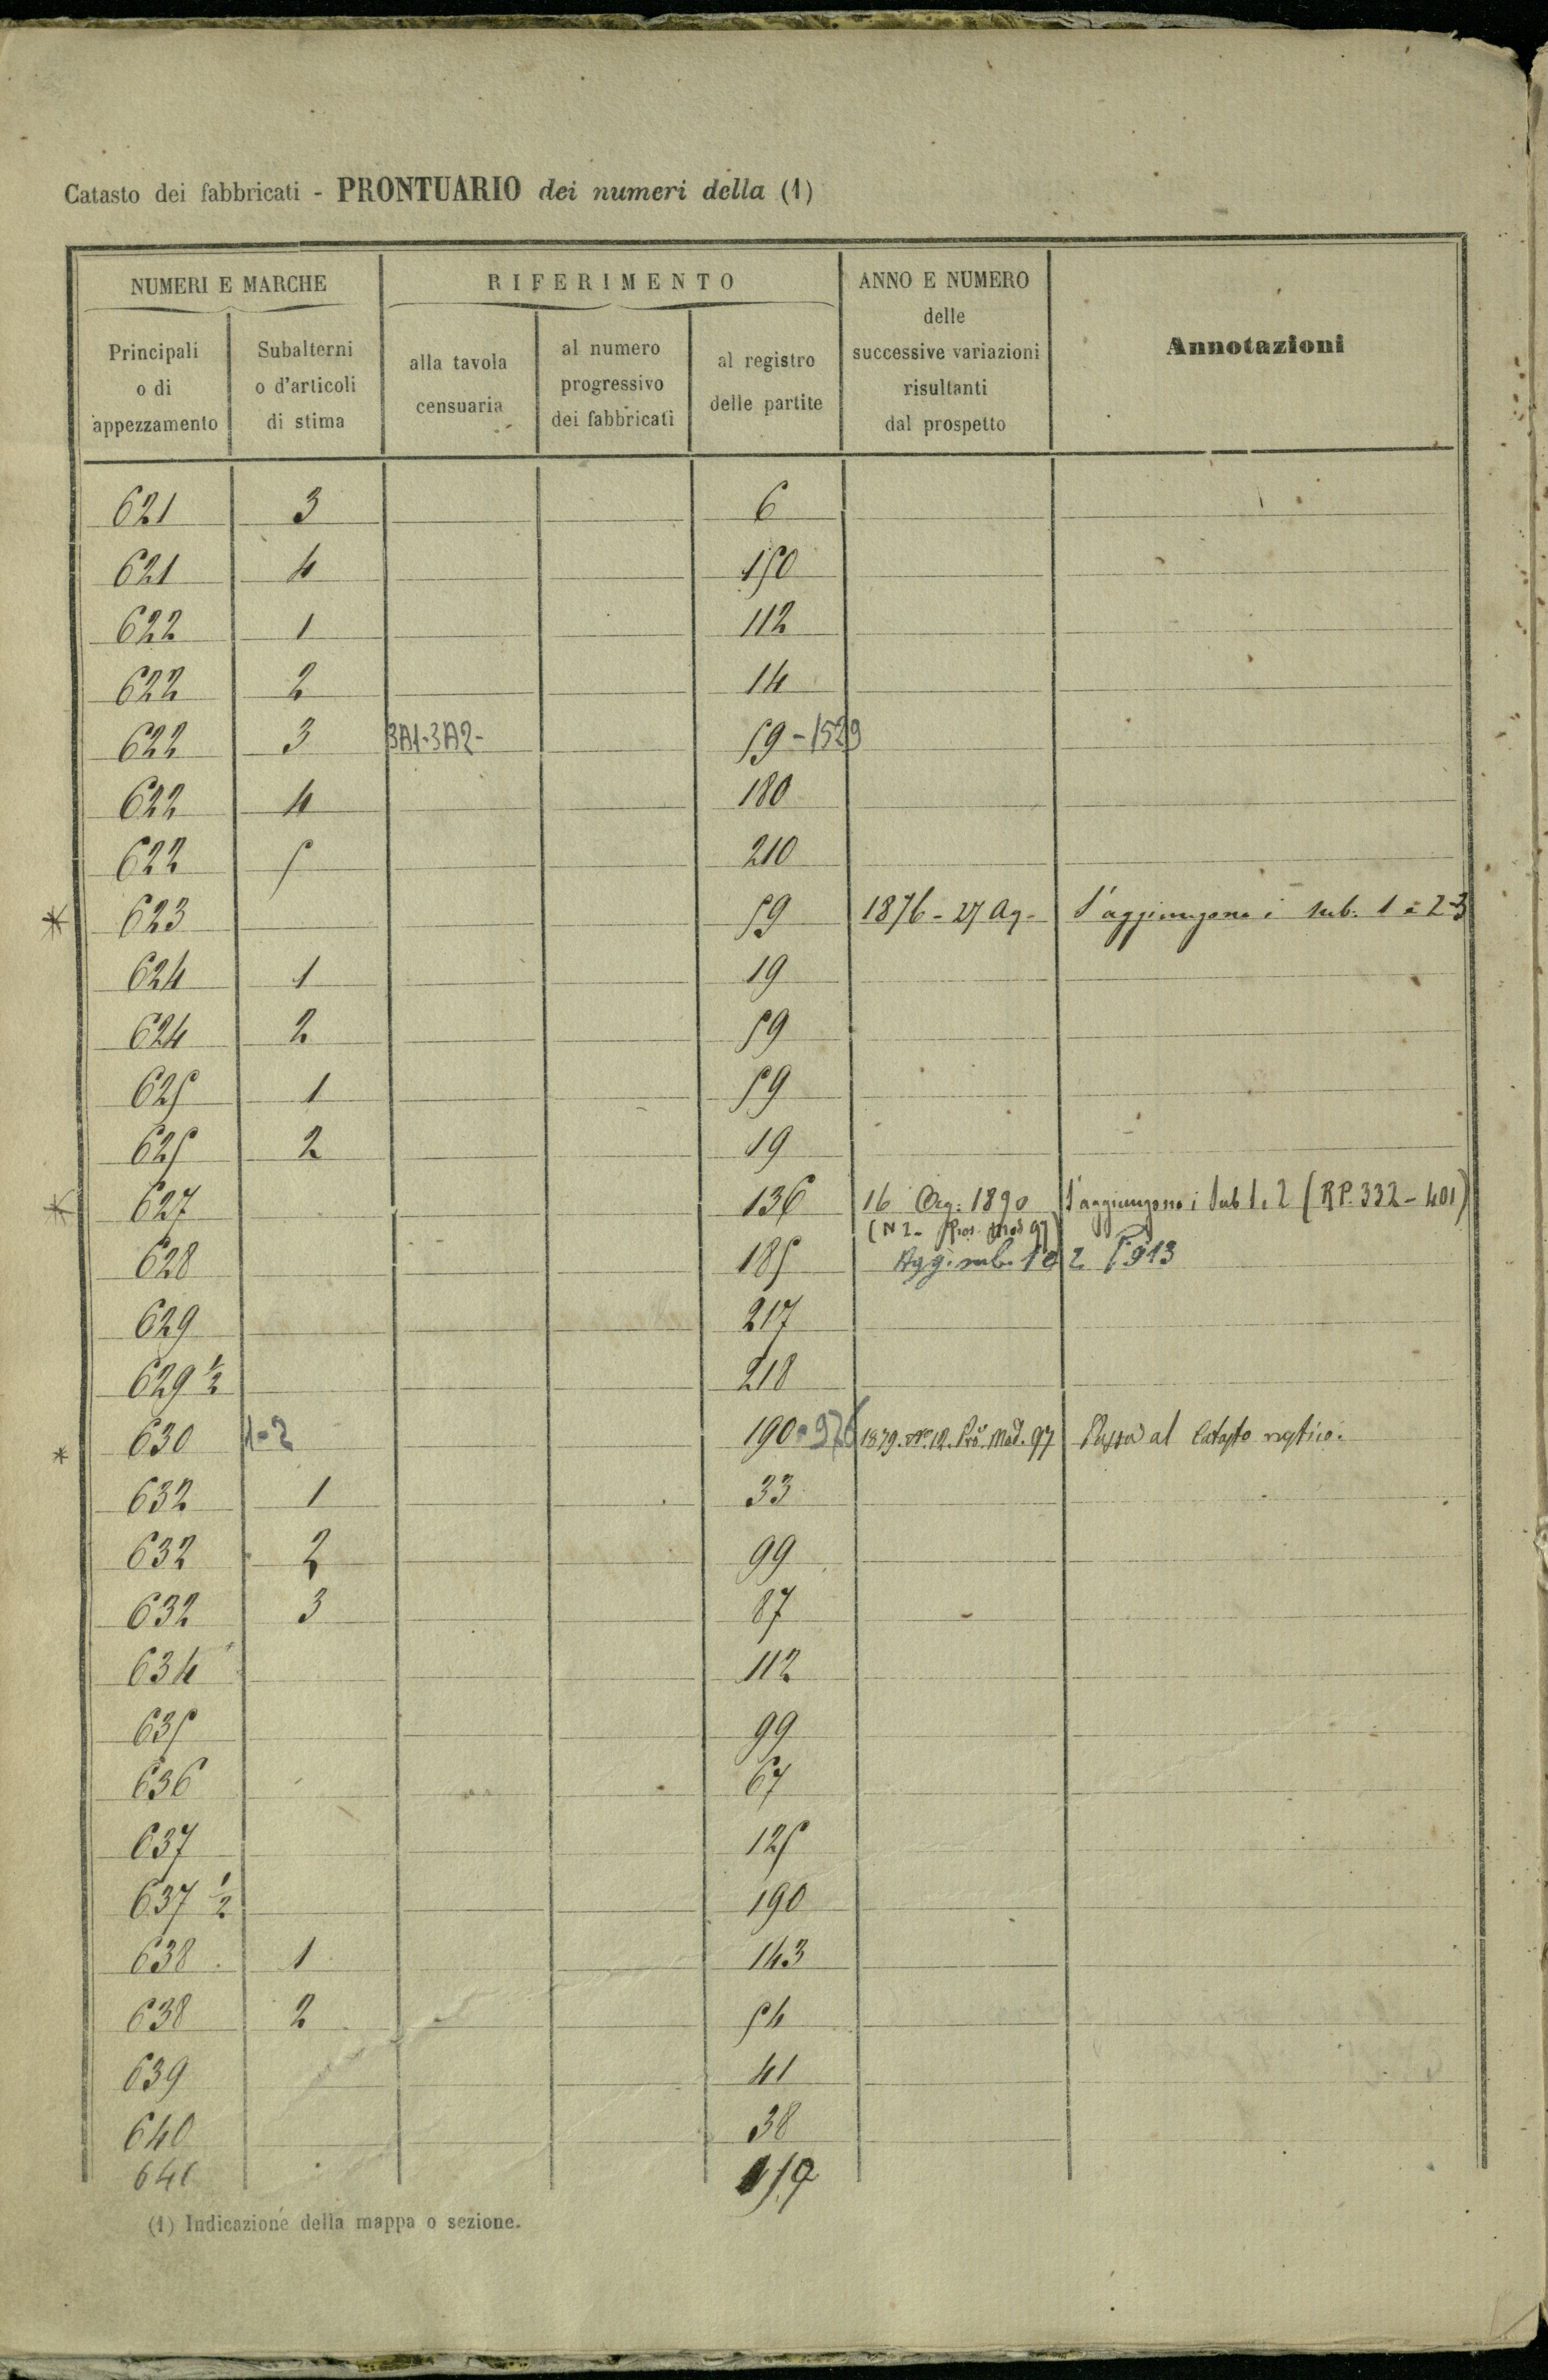 Catasto dei fabbricati - PRONTUARIO dei numeri della (1)
NUMERI E MARCHE
RIFERIMENTO
ANNO E NUMERO
delle
successive variazioni
risultanti
dal prospetto
Annotazioni
Principali
o di
appezzamento
Subalterni
o d'articoli
di stima
alla tavola
censuaria
al numero
progressivo
dei fabbricati
al registro
delle partite
621 3 6
621 4 150
622 1 112
622 2 14
622 3 3A1-3A2- 59-1529
622 4 180
622 5 210
* 623 59 1876-27 Ag- S'aggiungono i sub. 1 a 2-3
624 1 19
624 2 59
625 1 59
625 2 19
* 627 136 16 Ag: 1890 S'aggiungono i Sub 1. 2 (R.P. 332-401)
(N 2- Pros. Mod 97)
628 185 Agg. sub. 1 e 2 P. 913
629 217
629 1/2 218
* 630 1-2 190 1879. No. 12. Pro. Mod. 97 Passa al Catasto rustico.
632 1 33
632 2 99
632 3 87
634 112
635 99
636 67
637 125
637 1/2 190
638 1 143
638 2 54
639 41
640 38
641
(1) Indicazione della mappa o sezione.